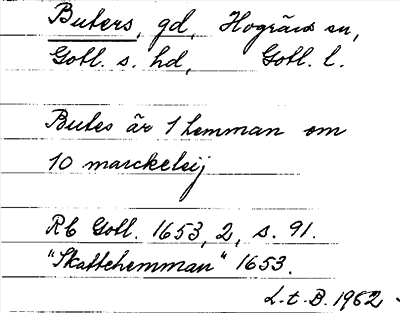 Buters, gd, Hogräns sn,
Gotl. s. hd, Gotl. l.
Butes är 1 hemman om
10 marckeleij
RC Gotl. 1653, 2, s. 91.
"Skattehemman" 1653.
L.t.B. 1962